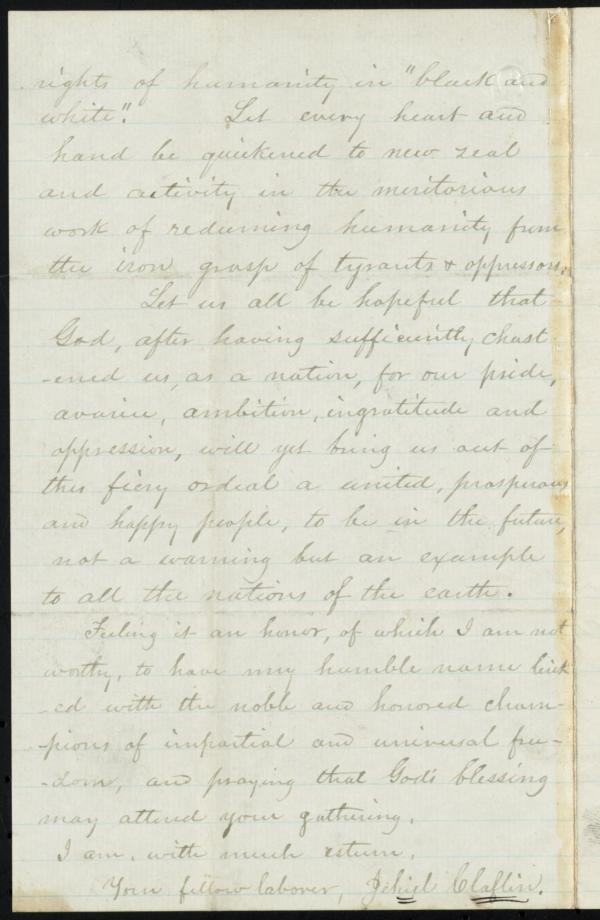 rights of humanity in "black and
white". Let every heart and
hand be quickened to new zeal
and activity in the meritorious
work of redeeming humanity from
the iron grasp of tyrants & oppressors.
Let us all be hopeful that
God, after having sufficiently chast-
-ened us, as a nation, for our pride,
avarice, ambition, ingratitude and
oppression, will yet bring us out of
this fiery ordeal a united, prosperous
and happy people, to be in the future,
not a warning but an example
to all the nations of the earth.
Feeling it an honor, of which I am not
worthy, to have my humble name link
-ed with the noble and honored cham-
-pions of impartial and universal free-
-dom, and praying that God's blessing
may attend your gathering.
I am, with much esteem,
Your fellow laborer, Jehiel Claflin.